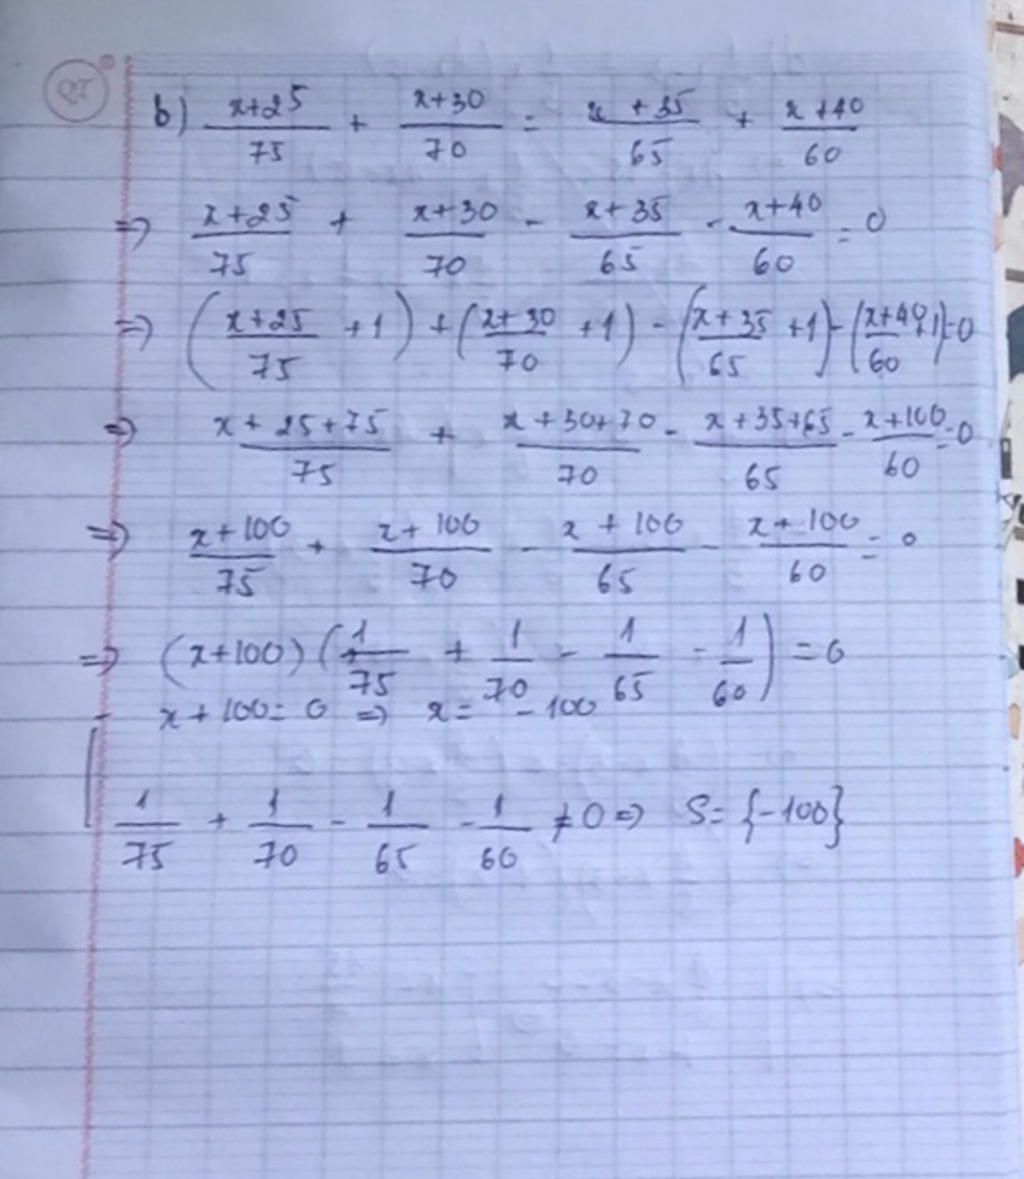 b) (x+25)/75 + (x+30)/70 = (x+35)/65 + (x+40)/60
=> (x+25)/75 + (x+30)/70 - (x+35)/65 - (x+40)/60 = 0
=> ((x+25)/75 + 1) + ((x+30)/70 + 1) - ((x+35)/65 + 1) - ((x+40)/60 + 1) = 0
=> (x+25+75)/75 + (x+30+70)/70 - (x+35+65)/65 - (x+100)/60 = 0
=> (x+100)/75 + (x+100)/70 - (x+100)/65 - (x+100)/60 = 0
=> (x+100)(1/75 + 1/70 - 1/65 - 1/60) = 0
x+100 = 0 => x = -100
1/75 + 1/70 - 1/65 - 1/60 ≠ 0 => S = {-100}